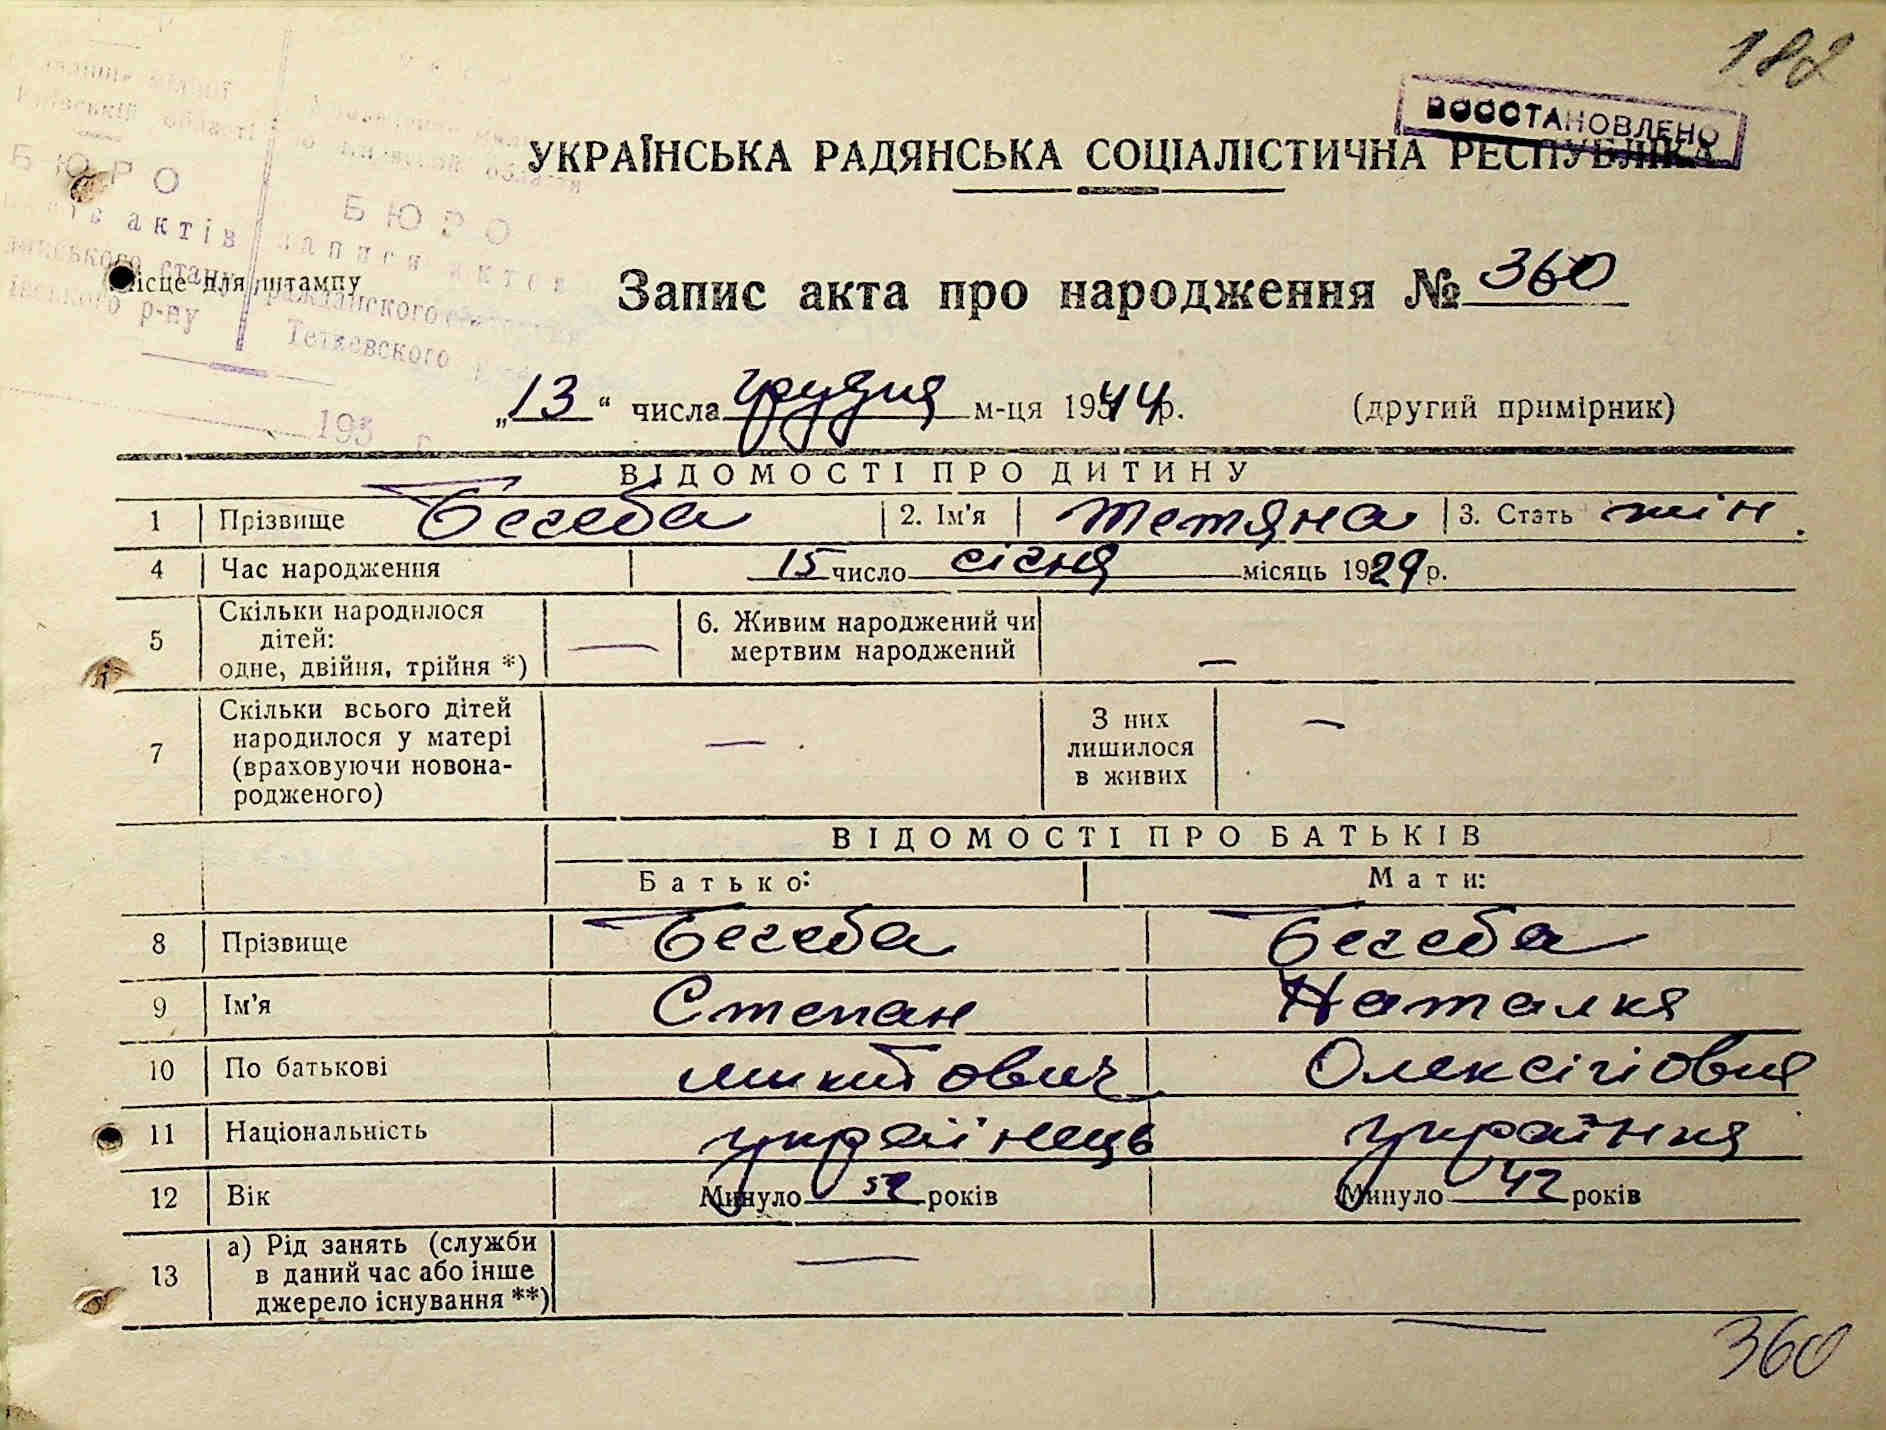 188
ВОССТАНОВЛЕНО
УКРАЇНСЬКА РАДЯНСЬКА СОЦІАЛІСТИЧНА РЕСПУБЛІКА
БЮРО
актів
стану
р-ну
БЮРО
записи актов
гражданского
Тетиевского
195 г.
Місце для штампу
Запис акта про народження № 360
„13“ числа грудня м-ця 1944 р. (другий примірник)
ВІДОМОСТІ ПРО ДИТИНУ
1 Прізвище Бегеба 2. Ім'я Тетяна 3. Стать жін.
4 Час народження 15 число січня місяць 1929 р.
5 Скільки народилося дітей: одне, двійня, трійня *) — 6. Живим народжений чи мертвим народжений —
7 Скільки всього дітей народилося у матері (враховуючи новонародженого) — З них лишилося в живих —
ВІДОМОСТІ ПРО БАТЬКІВ
Батько: Мати:
8 Прізвище Бегеба Бегеба
9 Ім'я Степан Наталка
10 По батькові Микитович Олексіївна
11 Національність українець українка
12 Вік Минуло 52 років Минуло 42 років
13 а) Рід занять (служби в даний час або інше джерело існування **) —
360